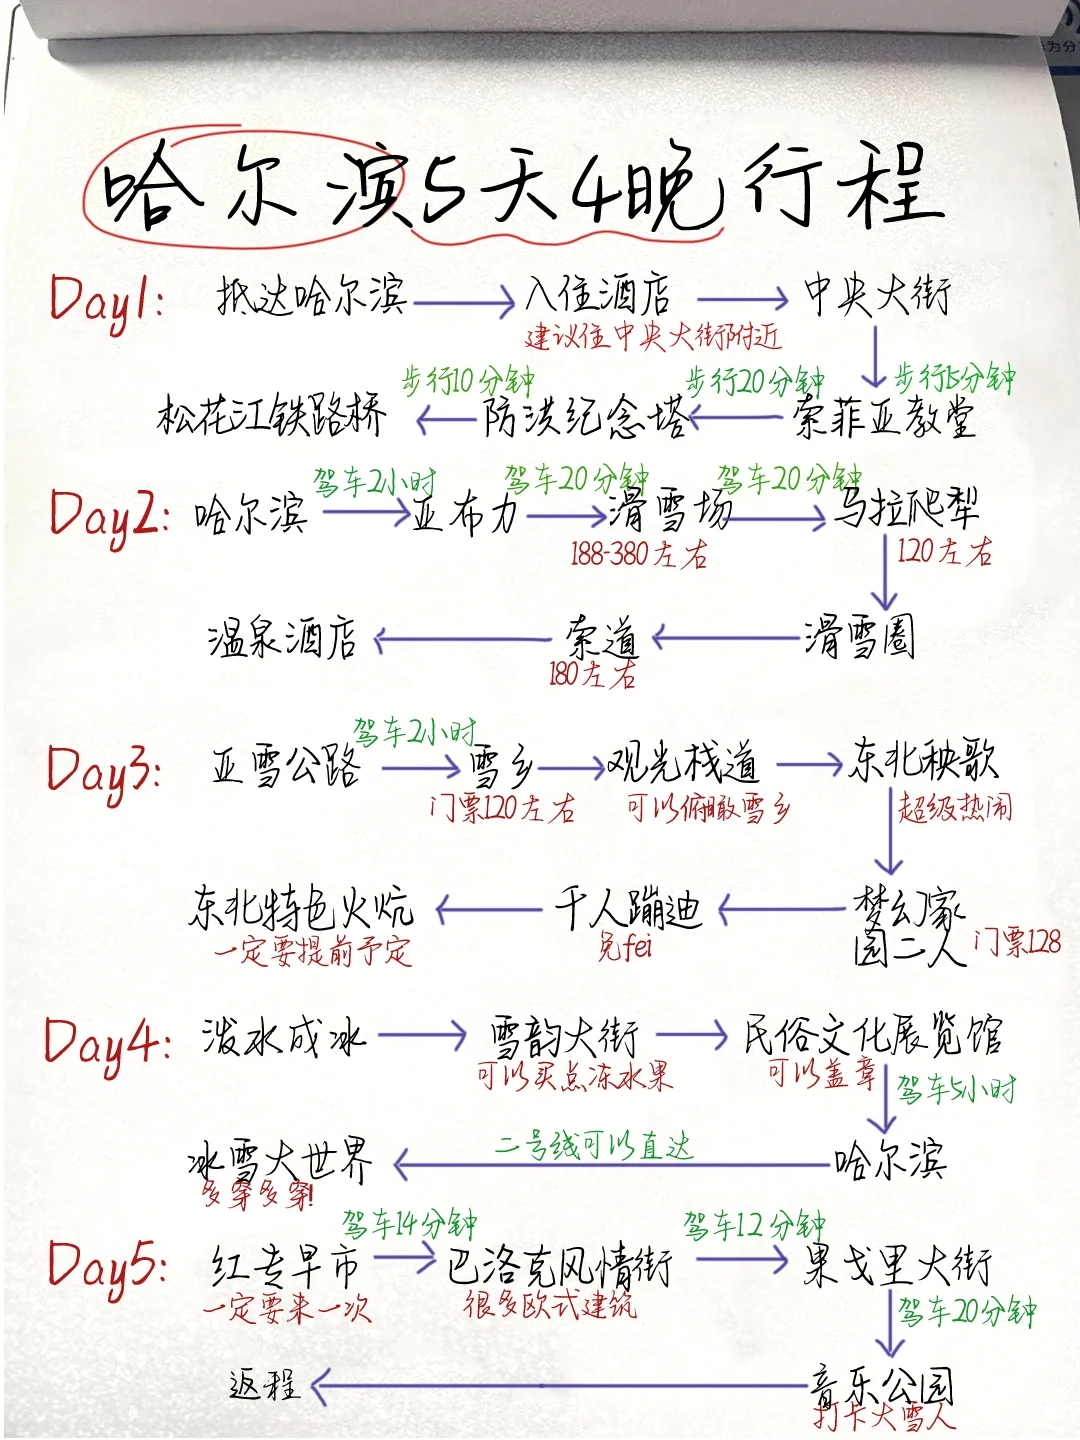 为分
哈尔滨5天4晚行程
Day1: 抵达哈尔滨 入住酒店 中央大街
建议住中央大街附近
步行10分钟 步行20分钟 步行15分钟
松花江铁路桥 防洪纪念塔 索菲亚教堂
驾车2小时 驾车20分钟 驾车20分钟
Day2: 哈尔滨 亚布力 滑雪场 马拉爬犁
188-380左右 120左右
温泉酒店 索道 滑雪圈
180左右
驾车2小时
Day3: 亚雪公路 雪乡 观光栈道 东北秧歌
门票120左右 可以俯瞰雪乡 超级热闹
东北特色火炕 千人蹦迪 梦幻家
一定要提前予定 免fei 园二人 门票128
Day4: 泼水成冰 雪韵大街 民俗文化展览馆
可以买点冻水果 可以盖章 驾车5小时
二号线可以直达
冰雪大世界 哈尔滨
多穿多穿!
驾车14分钟 驾车12分钟
Day5: 红专早市 巴洛克风情街 果戈里大街
一定要来一次 很多欧式建筑 驾车20分钟
返程 音乐公园
打卡大雪人